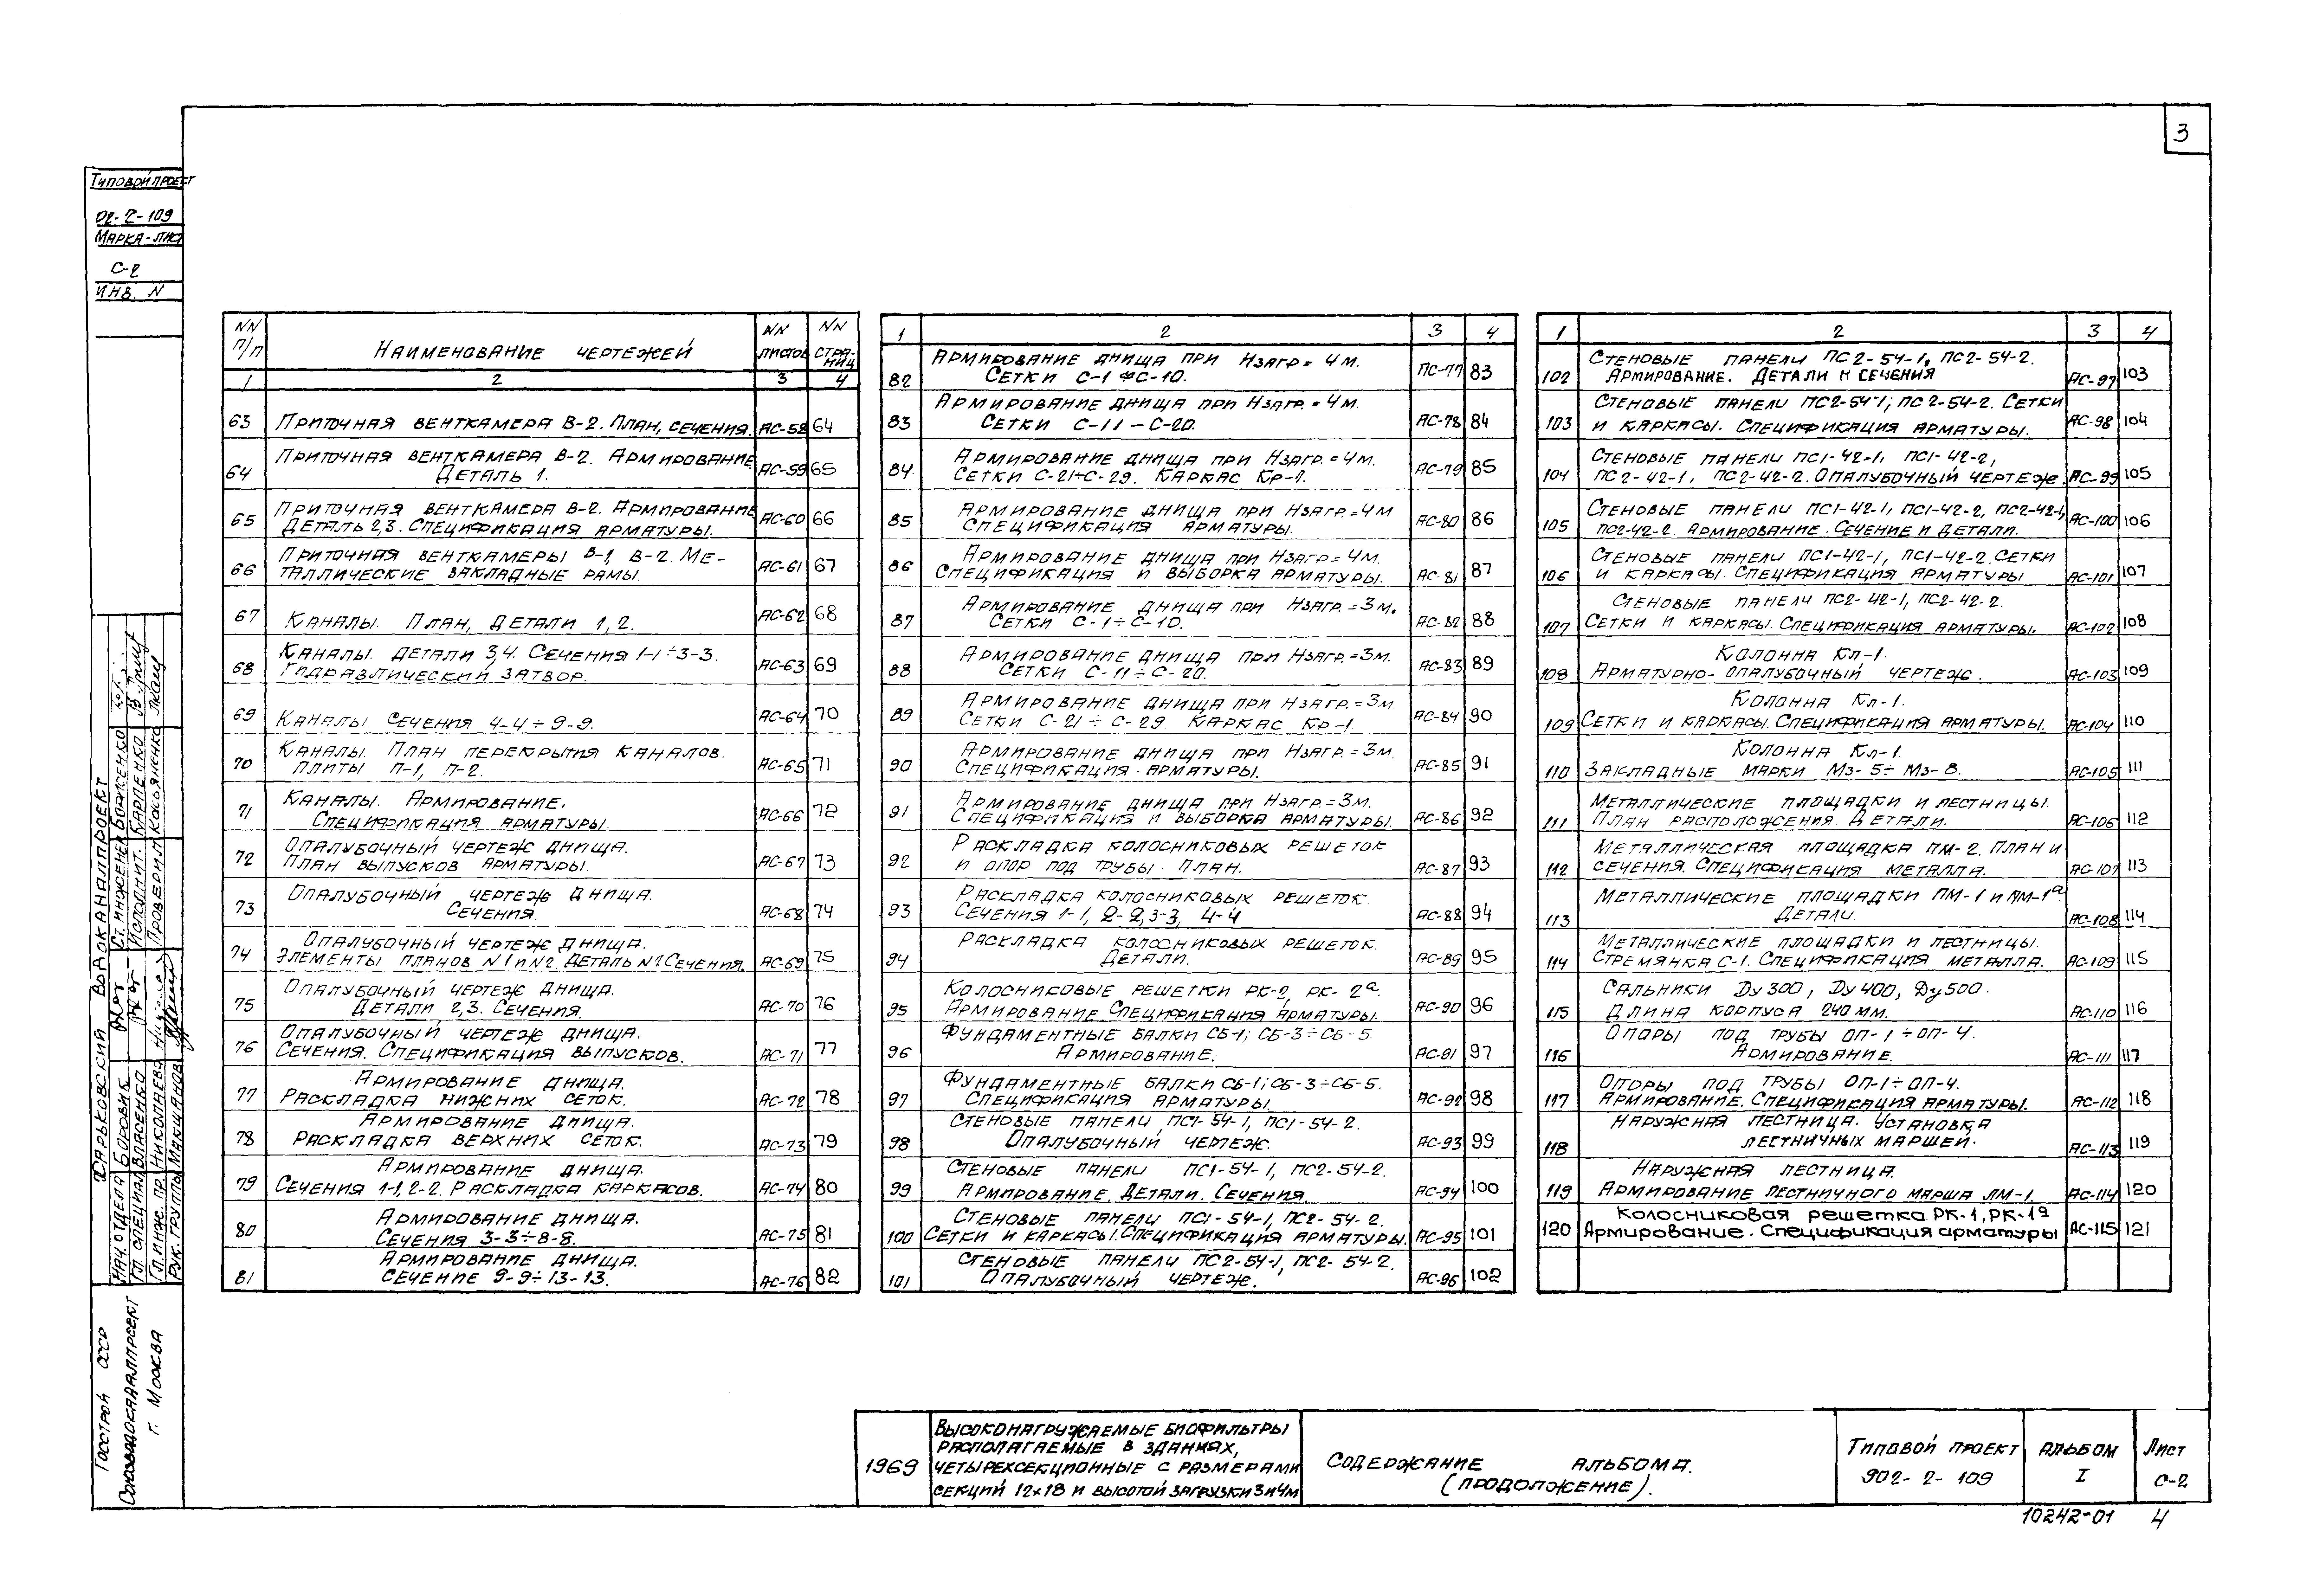 3
Типовой проект
02-2-109
Марка-лист
С-2
Инв. N
NN п/п
Наименование чертежей
NN листов
NN страниц
1 2 3 4
63 Приточная венткамера В-2. План, сечения. АС-58 64
64 Приточная венткамера В-2. Армирование
Деталь 1. АС-59 65
65 Приточная венткамера В-2. Армирование
Деталь 2,3. Спецификация арматуры. АС-60 66
66 Приточная венткамеры В-1, В-2. Ме-
таллические закладные рамы. АС-61 67
67 Каналы. План, детали 1,2. АС-62 68
68 Каналы. Детали 3,4. Сечения 1-1÷3-3.
Гидравлический затвор. АС-63 69
69 Каналы сечения 4-4÷9-9. АС-64 70
70 Каналы. План перекрытия каналов.
Плиты П-1, П-2. АС-65 71
71 Каналы. Армирование.
Спецификация арматуры. АС-66 72
72 Опалубочный чертеж днища.
План выпусков арматуры. АС-67 73
73 Опалубочный чертеж днища.
Сечения. АС-68 74
74 Опалубочный чертеж днища.
Элементы планов N1 и N2. Деталь N1. Сечения. АС-69 75
75 Опалубочный чертеж днища.
Детали 2,3. Сечения. АС-70 76
76 Опалубочный чертеж днища.
Сечения. Спецификация выпусков. АС-71 77
77 Армирование днища.
Раскладка нижних сеток. АС-72 78
78 Армирование днища.
Раскладка верхних сеток. АС-73 79
79 Армирование днища.
Сечения 1-1, 2-2. Раскладка каркасов. АС-74 80
80 Армирование днища.
Сечения 3-3÷8-8. АС-75 81
81 Армирование днища.
Сечение 9-9÷13-13. АС-76 82
1 2 3 4
82 Армирование днища при Hзагр=4м.
Сетки С-1÷С-10. ПС-77 83
83 Армирование днища при Hзагр.=4м.
Сетки С-11–С-20. АС-78 84
84 Армирование днища при Hзагр.=4м.
Сетки С-21÷С-29. Каркас Кр-1. АС-79 85
85 Армирование днища при Hзагр.=4м
Спецификация арматуры. АС-80 86
86 Армирование днища при Hзагр=4м.
Спецификация и выборка арматуры. АС-81 87
87 Армирование днища при Hзагр.=3м.
Сетки С-1÷С-10. АС-82 88
88 Армирование днища при Hзагр.=3м.
Сетки С-11÷С-20. АС-83 89
89 Армирование днища при Hзагр.=3м.
Сетки С-21÷С-29. Каркас Кр-1. АС-84 90
90 Армирование днища при Hзагр.=3м.
Спецификация арматуры. АС-85 91
91 Армирование днища при Hзагр.=3м.
Спецификация и выборка арматуры. АС-86 92
92 Раскладка колосниковых решеток
и опор под трубы. План. АС-87 93
93 Раскладка колосниковых решеток.
Сечения 1-1, 2-2, 3-3, 4-4 АС-88 94
94 Раскладка колосниковых решеток.
Детали. АС-89 95
95 Колосниковые решетки РК-2, РК-2а.
Армирование. Спецификация арматуры. АС-90 96
96 Фундаментные балки СБ-1; СБ-3÷СБ-5.
Армирование. АС-91 97
97 Фундаментные балки СБ-1; СБ-3÷СБ-5.
Спецификация арматуры. АС-92 98
98 Стеновые панели ПС1-54-1, ПС1-54-2.
Опалубочный чертеж. АС-93 99
99 Стеновые панели ПС1-54-1, ПС2-54-2.
Армирование. Детали. Сечения. АС-94 100
100 Стеновые панели ПС1-54-1, ПС2-54-2.
Сетки и каркасы. Спецификация арматуры. АС-95 101
101 Стеновые панели ПС2-54-1, ПС2-54-2.
Опалубочный чертеж. АС-96 102
1 2 3 4
102 Стеновые панели ПС2-54-1, ПС2-54-2.
Армирование. Детали и сечения АС-97 103
103 Стеновые панели ПС2-54-1; ПС2-54-2. Сетки
и каркасы. Спецификация арматуры. АС-98 104
104 Стеновые панели ПС1-42-1, ПС1-42-2,
ПС2-42-1, ПС2-42-2. Опалубочный чертеж. АС-99 105
105 Стеновые панели ПС1-42-1, ПС1-42-2, ПС2-42-1,
ПС2-42-2. Армирование. Сечение и детали. АС-100 106
106 Стеновые панели ПС1-42-1, ПС1-42-2. Сетки
и каркасы. Спецификация арматуры АС-101 107
107 Стеновые панели ПС2-42-1, ПС2-42-2.
Сетки и каркасы. Спецификация арматуры. АС-102 108
108 Колонна Кл-1.
Арматурно-опалубочный чертеж. АС-103 109
109 Колонна Кл-1.
Сетки и каркасы. Спецификация арматуры. АС-104 110
110 Колонна Кл-1.
Закладные марки Мз-5÷Мз-8. АС-105 111
111 Металлические площадки и лестницы.
План расположения. Детали. АС-106 112
112 Металлическая площадка ПМ-2. План и
сечения. Спецификация металла. АС-107 113
113 Металлические площадки ПМ-1 и ПМ-1а.
Детали. АС-108 114
114 Металлические площадки и лестницы.
Стремянка С-1. Спецификация металла. АС-109 115
115 Сальники Ду300, Ду400, Ду500.
Длина корпуса 240 мм. АС-110 116
116 Опоры под трубы ОП-1÷ОП-4.
Армирование. АС-111 117
117 Опоры под трубы ОП-1÷ОП-4.
Армирование. Спецификация арматуры. АС-112 118
118 Наружная лестница. Установка
лестничных маршей. АС-113 119
119 Наружная лестница.
Армирование лестничного марша ЛМ-1. АС-114 120
120 Колосниковая решетка РК-1, РК-1а
Армирование. Спецификация арматуры АС-115 121
Харьковский Водоканалпроект
Нач. отдела Боровик
Гл. специал. Власенко
Гл. инж. пр. Николаева
Рук. группы
Ст. инженер Борисенко
Исполнит. Карпенко
Проверил Касьяненко
Госстрой СССР
Союзводоканалпроект
г. Москва
1969
Высоконагружаемые биофильтры
располагаемые в зданиях,
четырехсекционные с размерами
секций 12×18 и высотой загрузки 3 и 4м
Содержание альбома.
(продолжение).
Типовой проект
902-2-109
Альбом
I
Лист
С-2
10242-01 4